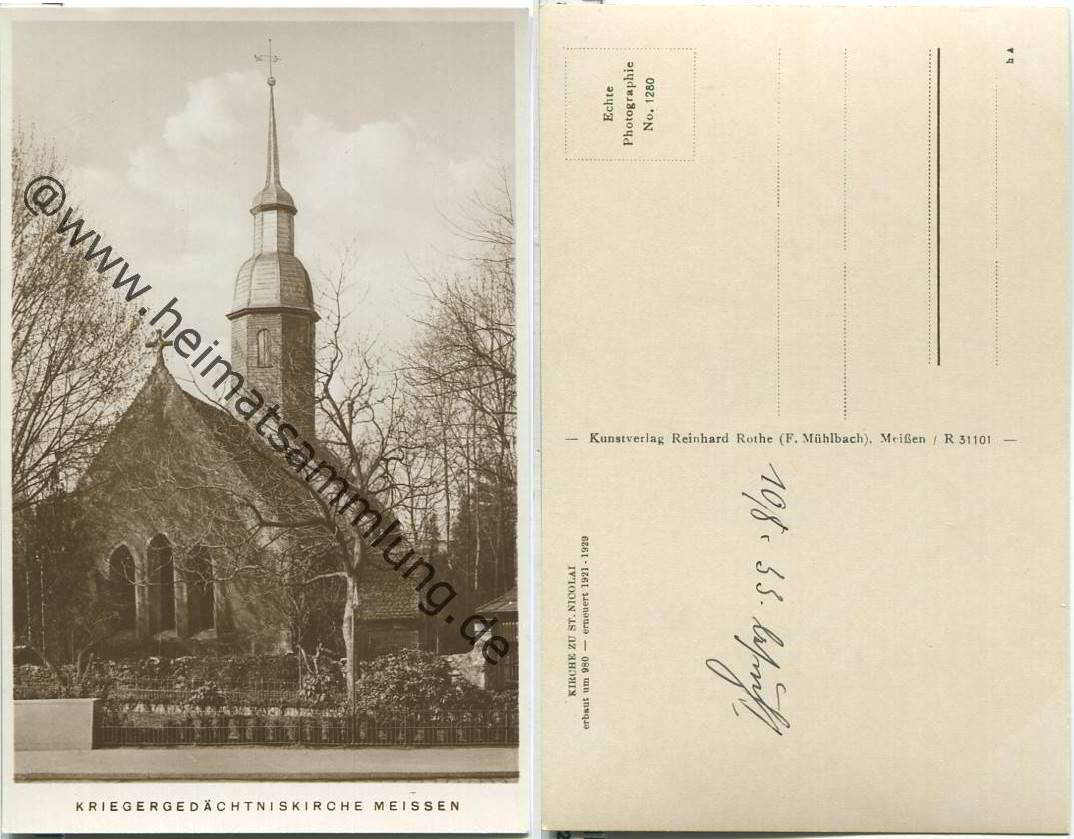 @www.heimatsammlung.de
KRIEGERGEDÄCHTNISKIRCHE MEISSEN
Echte
Photographie
No. 1280
— Kunstverlag Reinhard Rothe (F. Mühlbach), Meißen / R 31101 —
KIRCHE ZU ST. NICOLAI
erbaut um 980 — erneuert 1921-1929